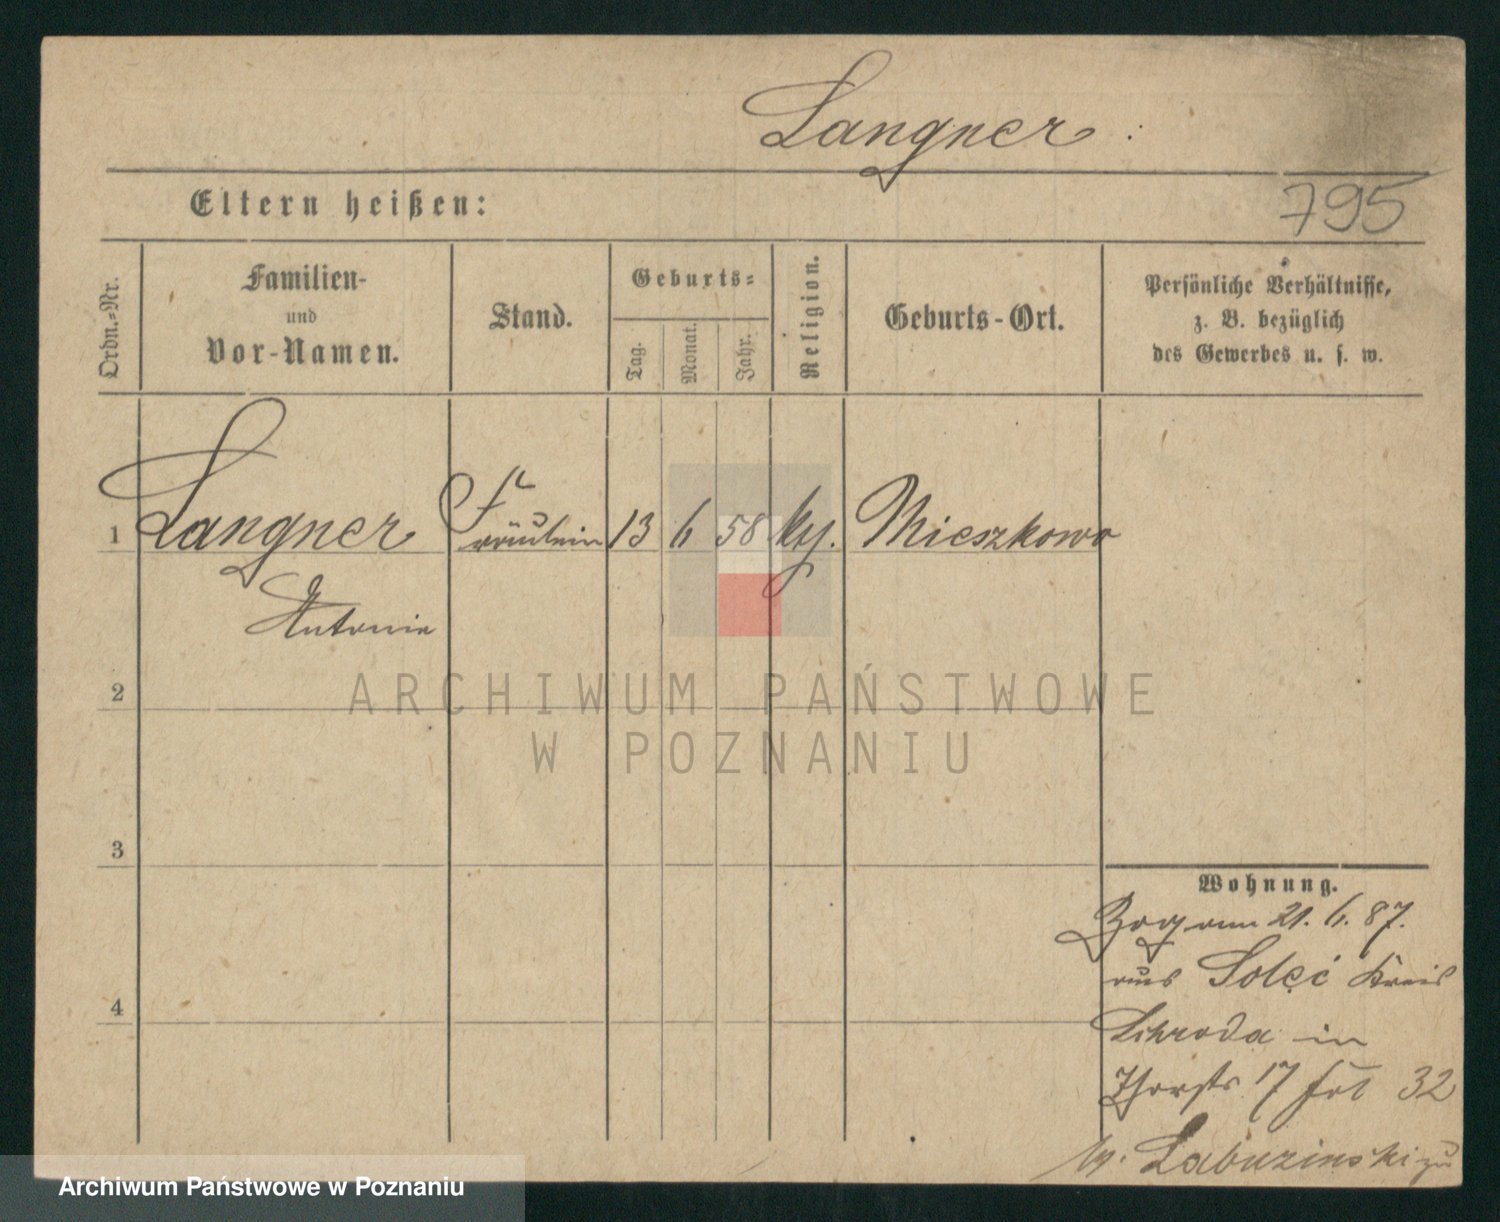 Langner
795
Eltern heißen:
Ordn.-Nr.
Familien-
und
Vor-Namen.
Stand.
Geburts-
Tag.
Monat.
Jahr.
Religion.
Geburts-Ort.
Persönliche Verhältnisse,
z. B. bezüglich
des Gewerbes u. s. w.
1 Langner Fräulein 13 6 58 kth. Mieszkowo
Antonie
2
ARCHIWUM PAŃSTWOWE
W POZNANIU
3
Wohnung.
Zog am 21. 6. 87.
aus Solec Kreis
Schroda in
17 32
zu
4
Archiwum Państwowe w Poznaniu